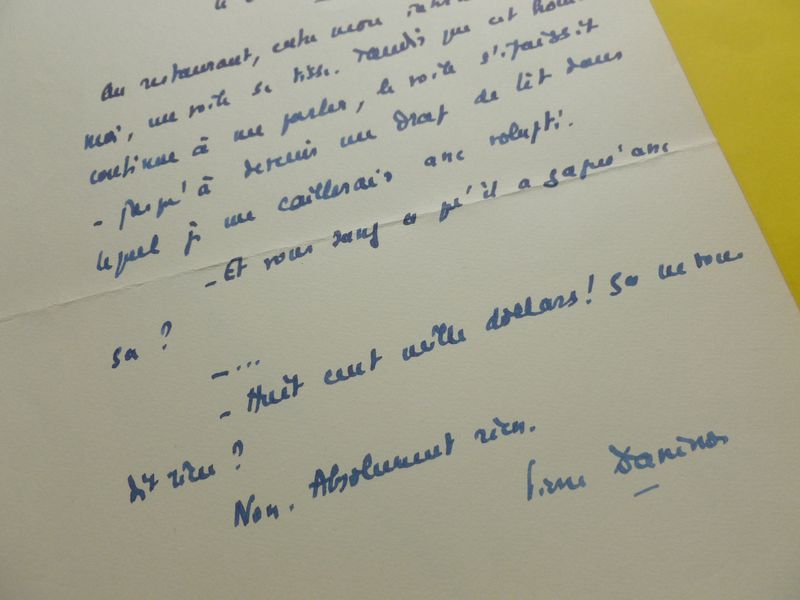 Au restaurant, entre mon
moi, un voile se tisse. Tandis que cet
continue à me parler, le voile s'épaissit
- jusqu'à devenir un Drap de lit dans
lequel je me avec volupté.
- Et vous ce qu'il a avec
sa ?
- ...
- Huit cent mille dollars! Sa ne vous
dit rien ?
Non. Absolument rien.
Pierre Daninos